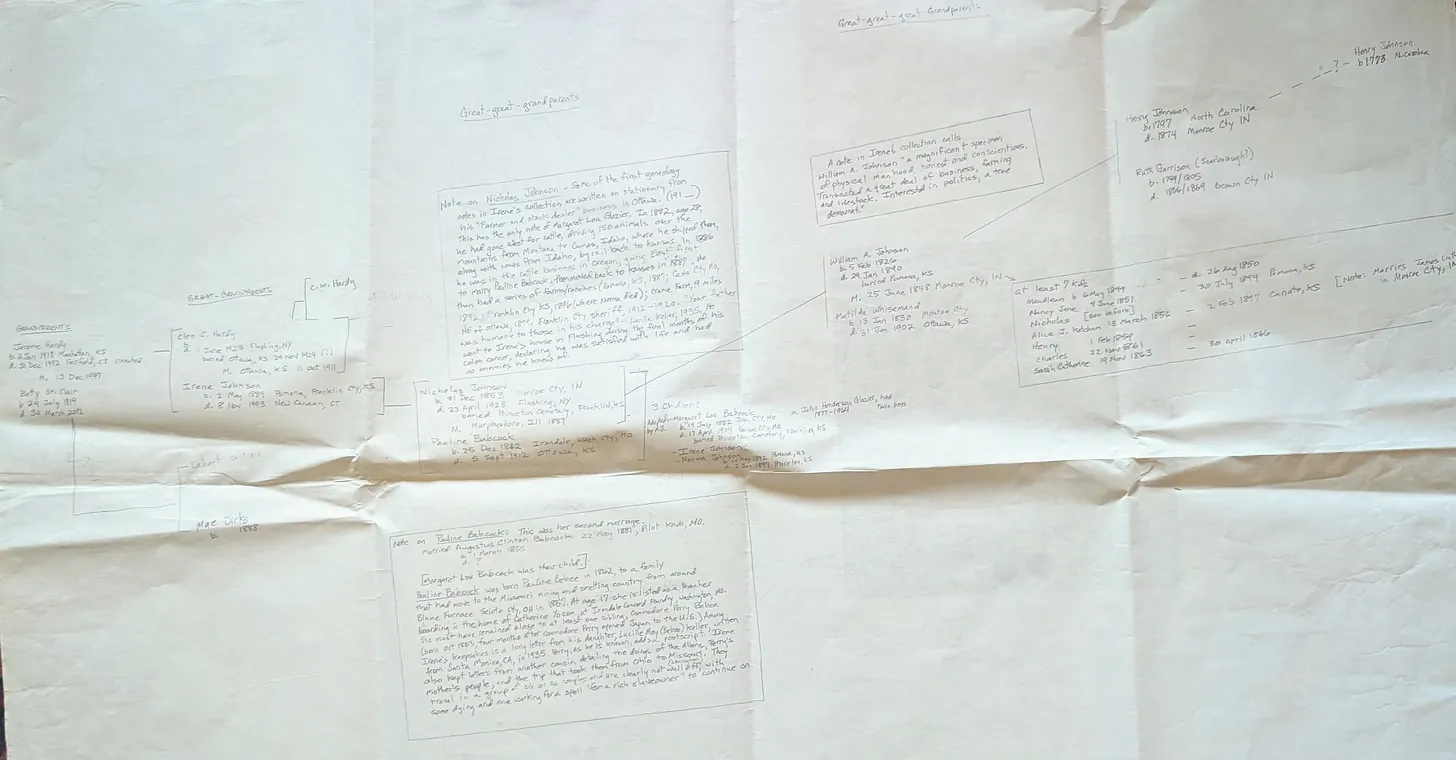 Great-great-great Grandparents
Henry Johnson
b 1773
?
Great-great-grandparents
Henry Johnson
b. 1797 North Carolina
d. 1874 Monroe Cty IN
Ruth Garrison (Scarborough?)
b. 1799/1805
d. 1866/1869 Brown Cty IN
A note in Irene's collection calls
William A. Johnson "a magnificent specimen
of physical manhood, honest and conscientious.
Transacted a great deal of business, farming
and livestock. Interested in politics, a true
democrat."
Note on Nicholas Johnson - Some of the first genealogy
notes in Irene's collection are written on stationary from
his "Farmer and stock dealer" business in Ottawa. (191_)
This has the only note of Margaret Lou Glazier. In 1882, age 28,
he had gone West for cattle, driving 150 animals over the
mountains from Montana to Camas, Idaho, where he shipped them,
along with cows from Idaho, by rail back to Kansas. In 1886
he was in the cattle business in Oregon, going East first
to marry Pauline Babcock, then moved back to Kansas in 1889. He
then had a series of farms/ranches KS, 1889; Cass Cty Mo,
1892; Franklin Cty KS, 1896 (where Norma died); Crane Farm, 9 miles
NE of Ottawa, 1899, Franklin Cty sheriff, 1912-1920. "Your father
was humane to those in his charge" - Jamie Kelley, 1935. He
went to Irene's house in Flushing during the final months of his
colon cancer, declaring he was satisfied with life and had
no enemies he knew of.
William A. Johnson
b. 5 Feb 1826
d. 29 Jan 1890
buried Pomona, KS
M. 25 June 1848 Monroe Cty, IN
Matilda Whisenand
b. 13 Jan 1830 Monroe Cty
d. 31 Jan 1902 Ottawa, KS
at least 7 kids
b 6 May 1849 - d. 26 Aug 1850
Nancy Jane 4 June 1851 - 30 July 1899 Pomona, KS
Nicholas [see before]
Alice J. Ketcham 13 March 1856 - 2 Feb 1897 Canute, KS [Note: Marries James
in Monroe City,
Henry 1 Feb 1859 -
Charles 22 Nov 1861 -
Sarah Catherine 19 Nov 1863 - 30 April 1866
GREAT-GRANDPARENTS
C.W. Hardy
GRANDPARENTS
Jerome Hardy
b. 2 Jan 1918 Manhattan, KS
d. 31 Dec 1992 Fairfield, CT cremated
M. 13 Dec
Betty St. Clair
b. 24 July 1919
d. 30 March 2012
Cleo C. Hardy
b.
d. 11 June 1953 Flushing, NY
buried Ottawa, KS 24 Nov 1924 (?)
M. Ottawa, KS 11 Oct 1911
Irene Johnson
b. 2 May 1889 Pomona, Franklin Cty, KS
d. 8 Nov 1993 New Canaan, CT
Nicholas Johnson
b. 31 Dec 1853 Monroe Cty, IN
d. 23 April 1938 Flushing, NY
buried Princeton Cemetary, Franklin, KS
M. Murphysboro, Ill 1887
Pauline Babcock
b. 25 Dec 1862 Irondale, Wash Cty, MO
d. 5 Sept 1912 Ottawa, KS
3 Children:
Adopted by N.J. - Margaret Lou Babcock m. John Henderson Glazier, had
b. 19 July 1882 Iron Cty, Mo 1877-1961 twin boys
d. 17 April 1904 Cass Cty, Mo
buried Princeton Cemetery, Franklin, KS
- Irene Johnson
- Norma Johnson
b. 1892 Pomona, KS
d. 2 Jan 1897 Princeton, KS
Labert St. Clair
Mae Dirks
b. 1888
Note on Pauline Babcock: This was her second marriage.
Married Augustus Clinton Babcock 22 May 1881, Pilot Knob, MO.
b. 1 March 1855
d. ?
[Margaret Lou Babcock was their child.]
Pauline Babcock was born Pauline Bebee in 1862, to a family
that had move to the Missouri mining and smelting country from around
Blume Furnace Scioto Cty, OH in 1857. At age 17 she is listed as a teacher
boarding in the home of Catherine Yocan, at Irondale Concord Foundry, Washington, Mo.
She must have remained close to at least one sibling, Commodore Perry Bebee
(born Oct 1853, four months after Commodore Perry opened Japan to the U.S.) Among
Irene's keepsakes is a long letter from his daughter, Lucille May (Bebee) Keller, written
from Santa Monica, CA, in 1935. Perry, as he is known, adds a postscript. Irene
also kept letters from another cousin, detailing the doings of the Allens, Perry's
mother's people, and the trip that took them from Ohio to Missouri. They
travel in a group of six or so couples and are clearly not well off, with
some dying and one working for a spell "for a rich slaveowner" to continue on.